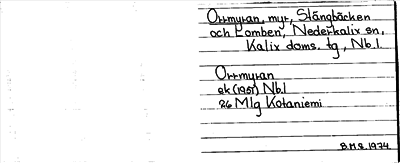 Orrmyran, myr, Slångbäcken
och Lomben, Nederkalix sn,
Kalix doms. tg, Nb.l.
Orrmyran
ek (1951) Nb.l
26 Mlg Kotaniemi
B.M.S. 1974